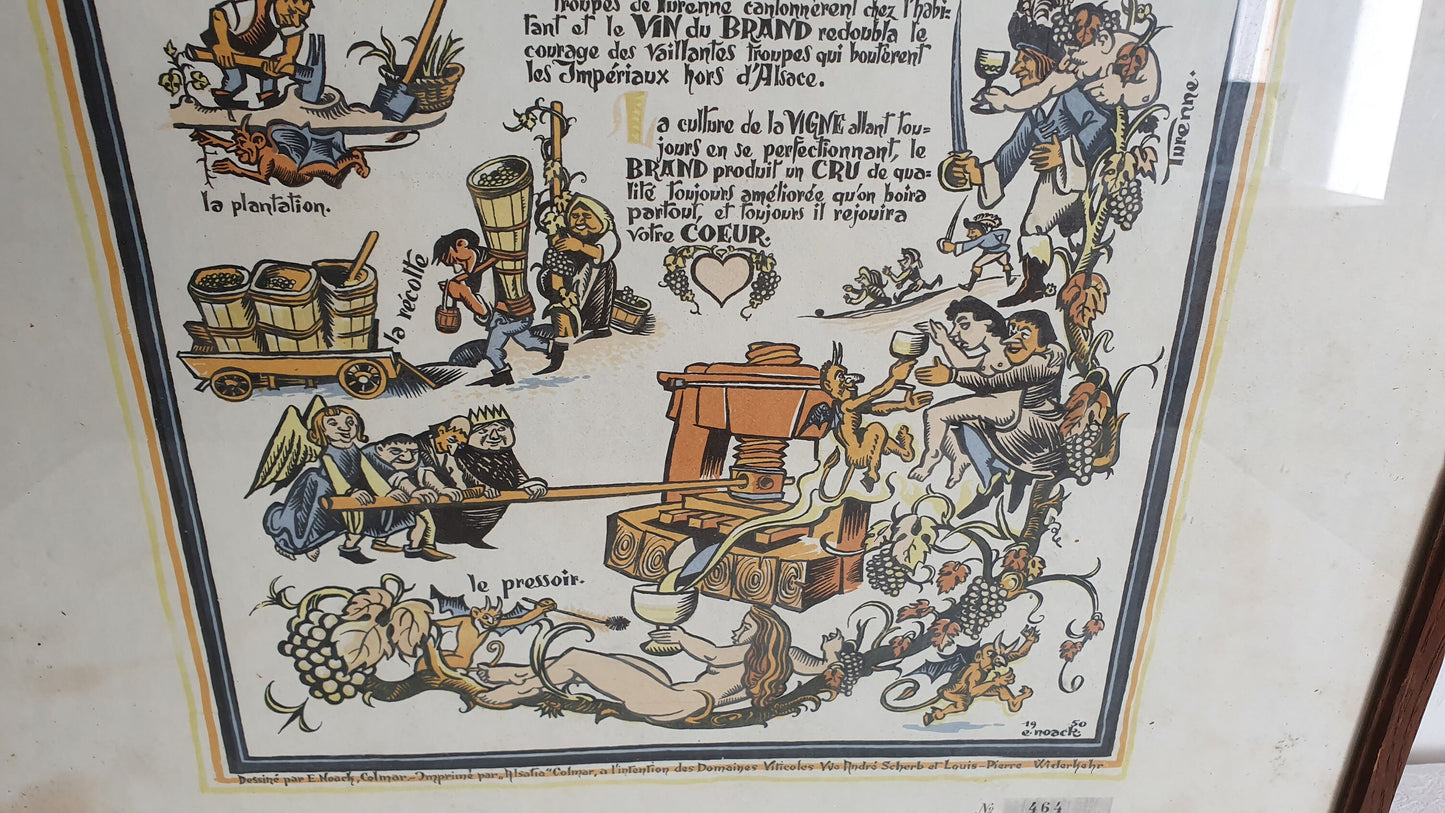 troupes de Turenne cantonnèrent chez l'habi-
tant et le VIN du BRAND redoubla le
courage des vaillantes troupes qui boutèrent
les Impériaux hors d'Alsace.
La culture de la VIGNE allant tou-
jours en se perfectionnant, le
BRAND produit un CRU de qua-
lité toujours améliorée qu'on boira
partout, et toujours il rejouira
votre COEUR.
Turenne.
la plantation.
la récolte
le pressoir.
19 50
e. noack
Dessiné par E. Noack, Colmar - Imprimé par „Alsatia" Colmar, a l'intention des Domaines Viticoles Vve André Scherb et Louis - Pierre Widerkehr
No 464